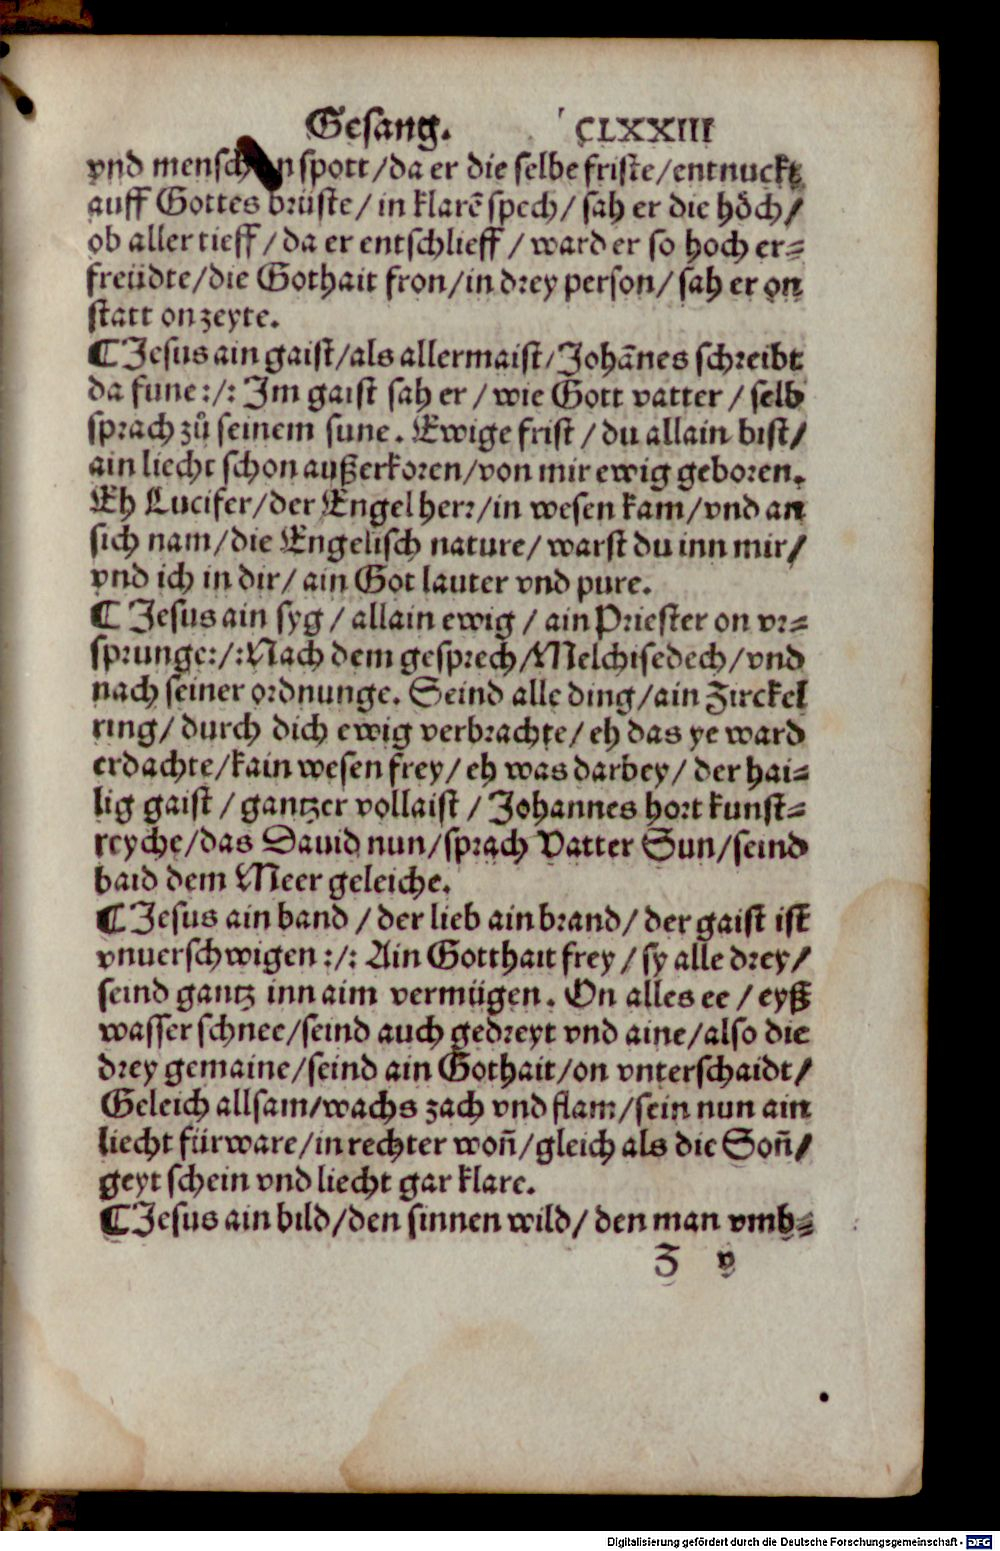 Gesang. CLXXIII
vnd menschen spott/da er die selbe friste/entnuckt
auff Gottes brüste/ in klarē spech/ sah er die hoͤch/
ob aller tieff/ da er entschlieff / ward er so hoch er⸗
freüdte/die Gothait fron/in drey person/ sah er on
statt on zeyte.
¶Jesus ain gaist/als allermaist/Johānes schreibt
da fune:/: Im gaist sah er / wie Gott vatter / selb
sprach zů seinem sune. Ewige frist / du allain bist/
ain liecht schon außerkoren/von mir ewig geboren.
Eh Lucifer/der Engel herr/in wesen kam/vnd an
sich nam/die Engelisch nature/ warst du inn mir/
vnd ich in dir/ ain Got lauter vnd pure.
¶ Jesus ain syg / allain ewig / ain Priester on vr⸗
sprunge:/:Nach dem gesprech/Melchisedech/vnd
nach seiner ordnunge. Seind alle ding/ain Zirckel
ring/ durch dich ewig verbrachte/ eh das ye ward
erdachte/kain wesen frey/ eh was darbey/ der hai⸗
lig gaist / gantzer vollaist / Johannes hort kunst⸗
reyche/das Dauid nun/sprach Vatter Sun/seind
baid dem Meer geleiche.
¶Jesus ain band / der lieb ain brand/ der gaist ist
vnuerschwigen :/: Ain Gotthait frey / sy alle drey/
seind gantz inn aim vermügen. On alles ee / eyß
wasser schnee/seind auch gedreyt vnd aine/also die
drey gemaine/seind ain Gothait/on vnterschaidt/
Geleich allsam/wachs zach vnd flam/sein nun ain
liecht fürware/in rechter won̄/gleich als die Son̄/
geyt schein vnd liecht gar klare.
¶Jesus ain bild/den sinnen wild/ den man vmb⸗
Z v
Digitalisierung gefördert durch die Deutsche Forschungsgemeinschaft - DFG